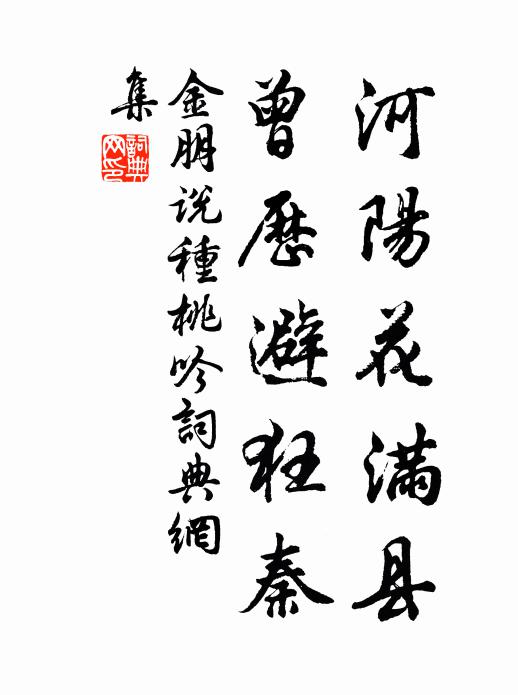 河陽花满县
曾歷避狂秦
金朋说種桃吟詞典網
集
詞典
网印